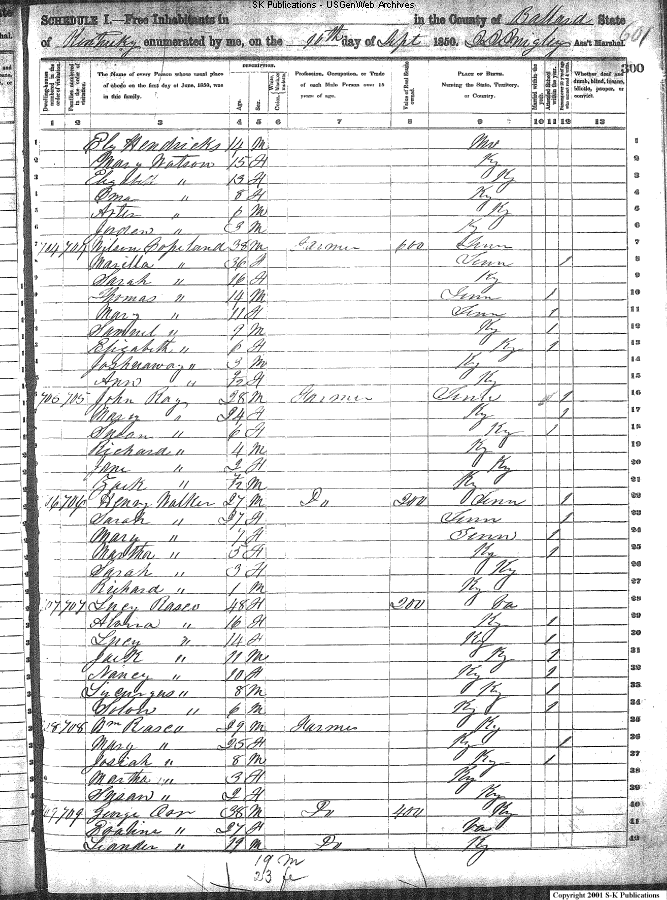 SK Publications - USGenWeb Archives
SCHEDULE I.—Free Inhabitants in in the County of Ballard State
of Kentucky enumerated by me, on the 10th day of Sept 1850. Ass't Marshal. 601
300
Dwelling-houses numbered in the order of visitation. Families numbered in the order of visitation. The Name of every Person whose usual place of abode on the first day of June, 1850, was in this family. DESCRIPTION. Age. Sex. Color. Profession, Occupation, or Trade of each Male Person over 15 years of age. Value of Real Estate owned. Place of Birth. Naming the State, Territory, or Country. Married within the year. Attended School within the year. Whether deaf and dumb, blind, insane, idiotic, pauper, or convict.
1 2 3 4 5 6 7 8 9 10 11 12 13
Ely Hendricks 14 M Mo 1
Mary Watson 15 F Ky 2
Elizabeth " 13 F Ky 3
" 8 F Ky 4
" 6 M Ky 5
Jorden " 3 M Ky 6
704 704 Wilson Copeland 38 M Farmer 600 Tenn 7
Marilla " 36 F Tenn 1 8
Sarah " 16 F Ky 9
Thomas " 14 M Tenn 1 10
Mary " 11 F Tenn 1 11
Samuel " 9 M Ky 1 12
Elizabeth " 6 F Ky 1 13
" 3 M Ky 14
Ann " F Ky 15
705 705 John Ray 28 M Farmer Tenn 1 16
Mary " 24 F Ky 1 17
Susan " 6 F Ky 1 18
Richard " 4 M Ky 19
Jane " 2 F Ky 20
Zack " M Ky 21
06 706 Henry Walker 27 M Do 200 Tenn 1 22
Sarah " 27 F Tenn 1 23
Mary " 7 F Tenn 1 24
Martha " 5 F Ky 1 25
Sarah " 3 F Ky 26
Richard " 1 M Ky 27
07 707 Lucy Rasco 48 F 200 Va 28
" 16 F Ky 1 29
Lucy " 14 F Ky 1 30
Jack " 11 M Ky 1 31
Nancy " 10 F Ky 1 32
Lycurgus " 8 M Ky 1 33
Solon " 6 M Ky 1 34
08 708 Wm Rasco 29 M Farmer Ky 35
Mary " 25 F Ky 1 36
Josiah " 8 M Ky 1 37
Martha " 3 F Ky 38
Susan " 2 F Ky 39
09 709 George 38 M Do 400 Ky 40
" 27 F Va 41
Leander " 19 M Do Ky 42
19 M
23 fe
Copyright 2001 S-K Publications